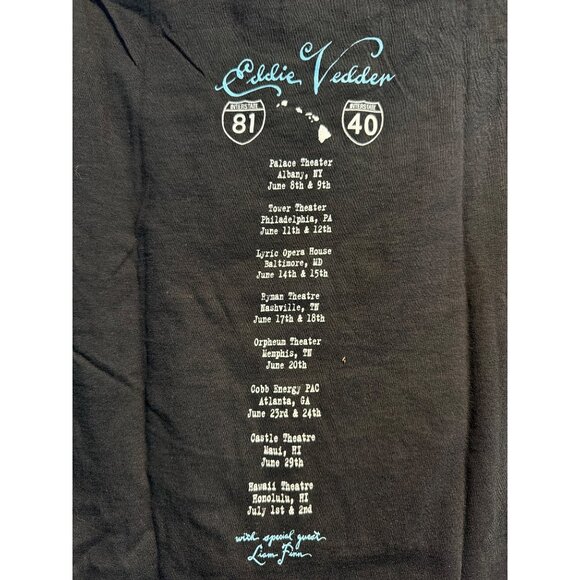 Eddie Vedder
INTERSTATE
81
INTERSTATE
40
Palace Theater
Albany, NY
June 8th & 9th
Tower Theater
Philadelphia, PA
June 11th & 12th
Lyric Opera House
Baltimore, MD
June 14th & 15th
Ryman Theatre
Nashville, TN
June 17th & 18th
Orpheum Theater
Memphis, TN
June 20th
Cobb Energy PAC
Atlanta, GA
June 23rd & 24th
Castle Theatre
Maui, HI
June 29th
Hawaii Theatre
Honolulu, HI
July 1st & 2nd
with special guest
Liam Finn